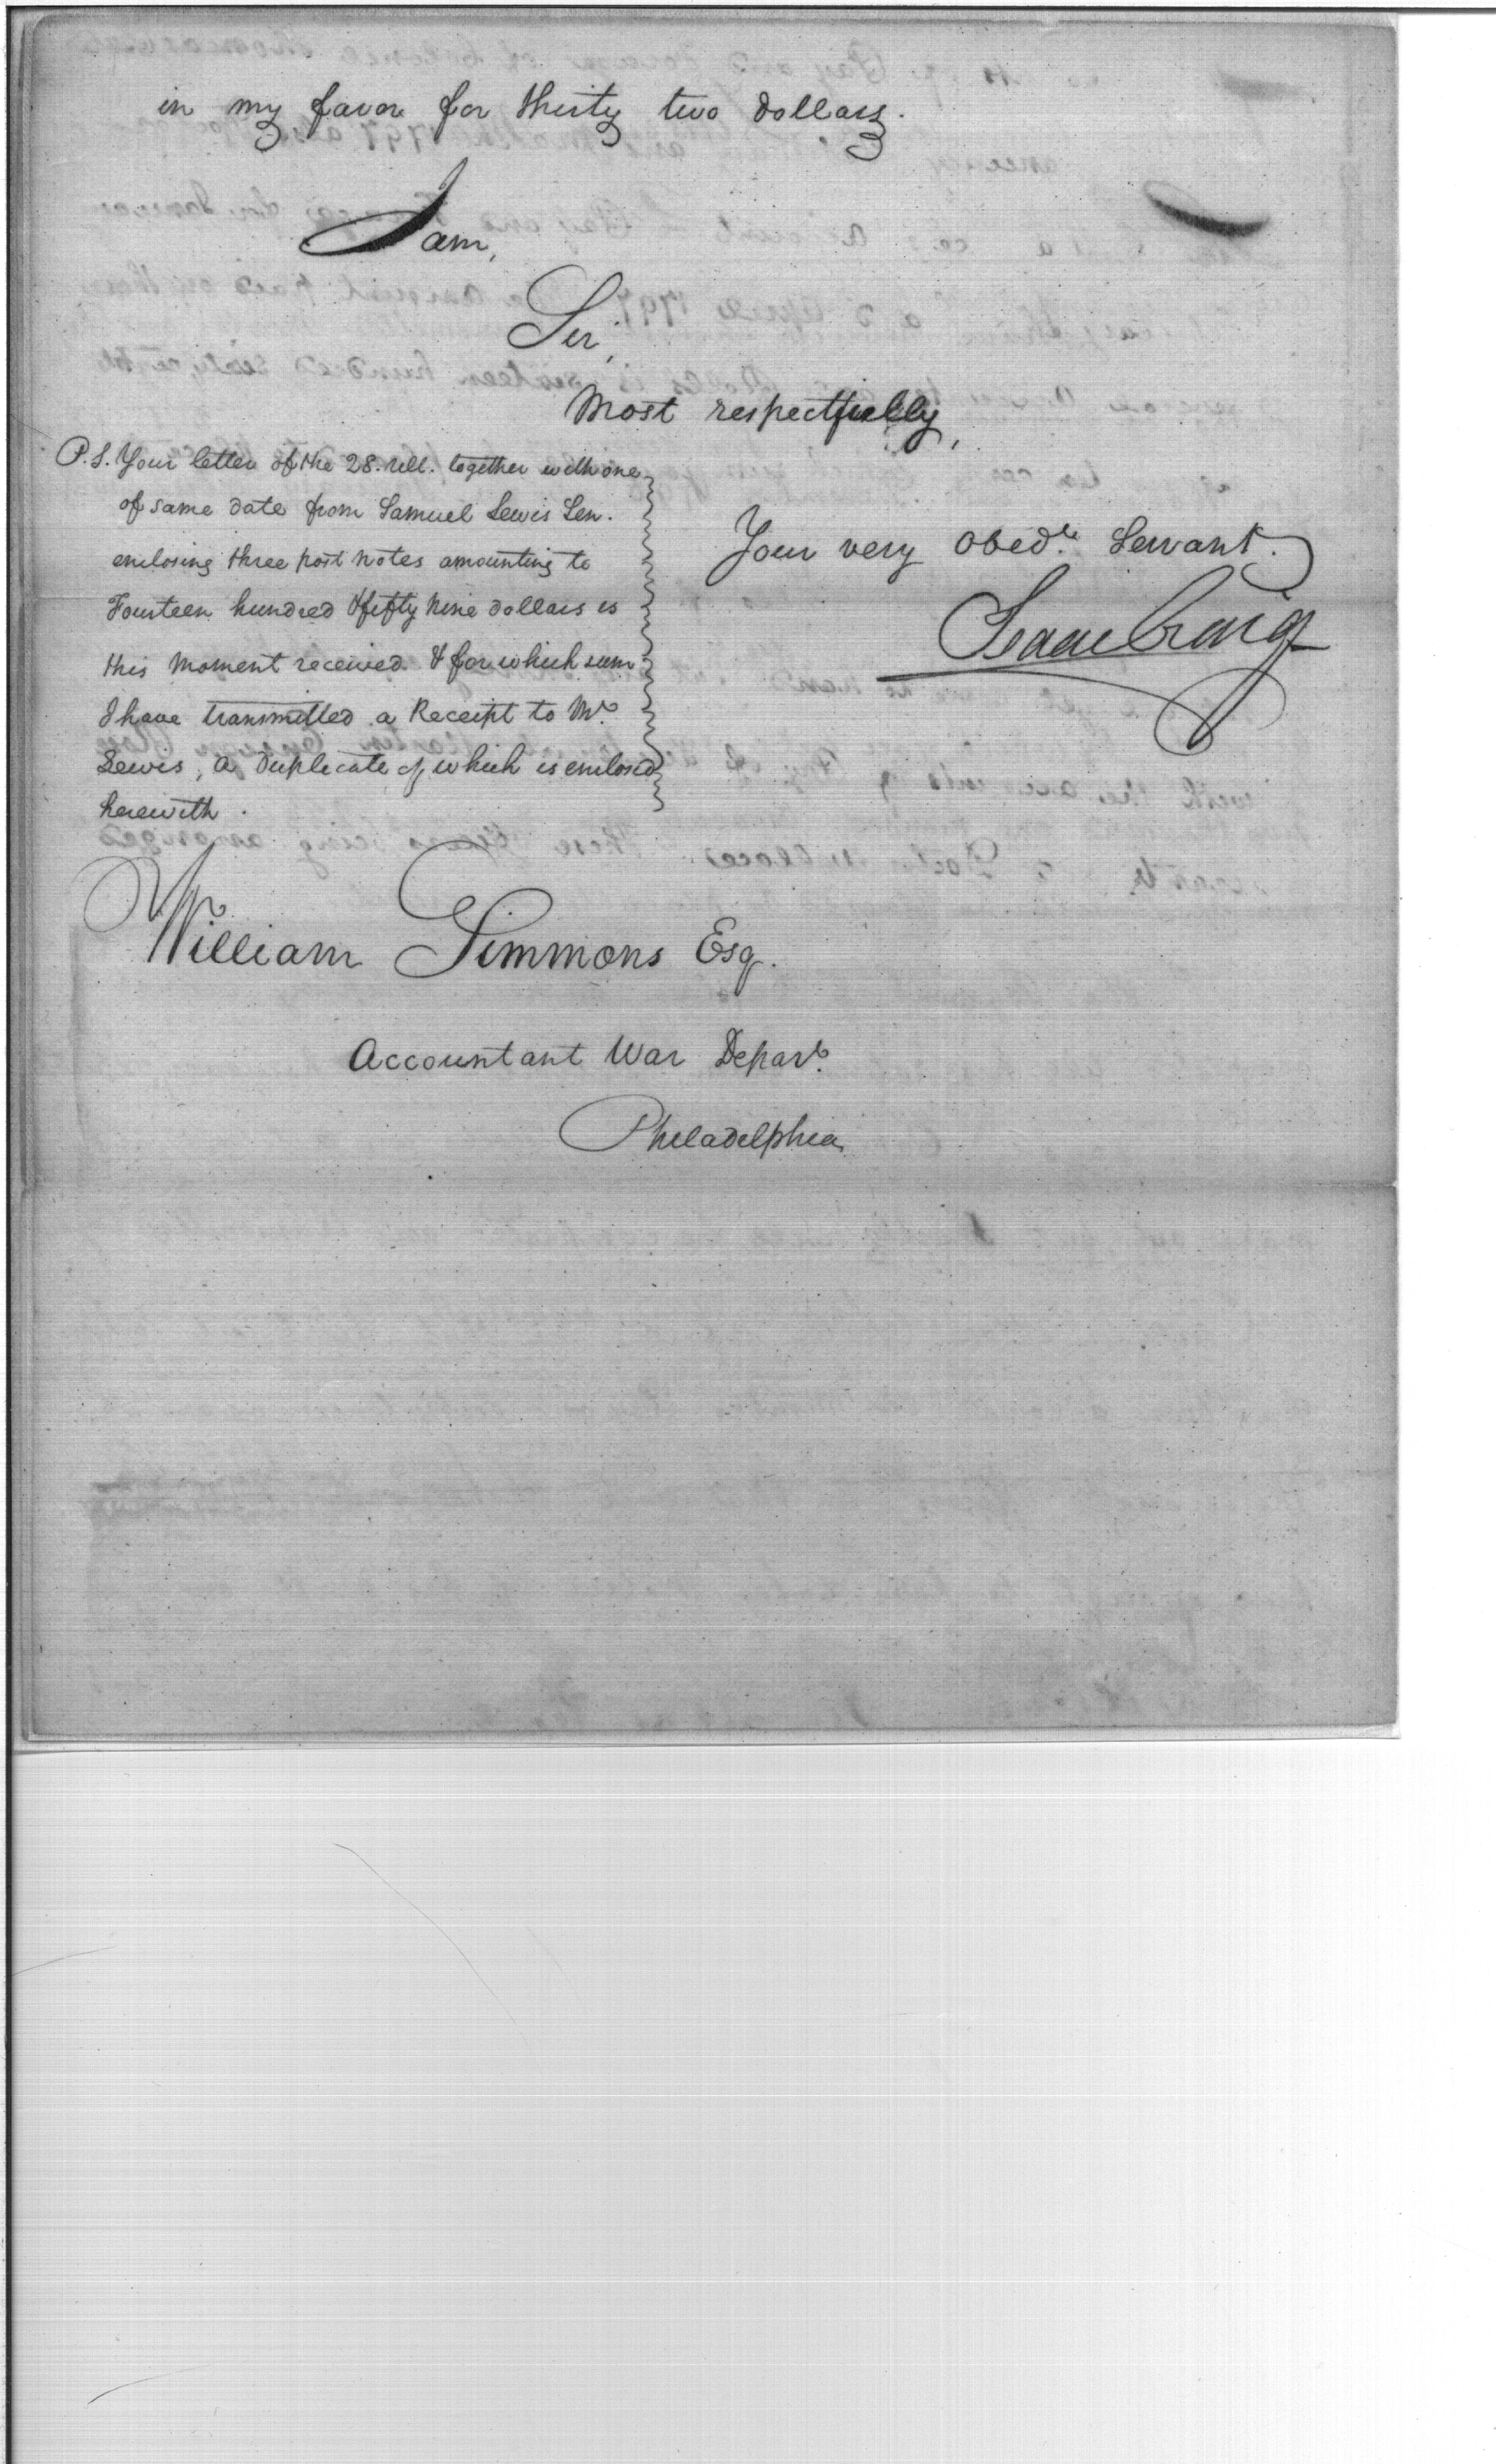 in my favor for thirty two dollars.
I am,
Sir,
Most respectfully,
Your very Obedt. Servant.
Isaac Craig
P.S. Your letter of the 28. ult. together with one
of same date from Samuel Lewis Sen.
enclosing three post notes amounting to
Fourteen hundred & fifty nine dollars is
this moment received & for which sum
I have transmitted a Receipt to Mr.
Lewis, a Duplicate of which is enclosed
herewith.
William Simmons Esq.
Accountant War Depart.
Philadelphia